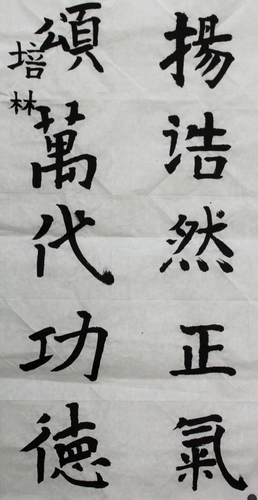 揚浩然正氣
頌萬代功德
培林